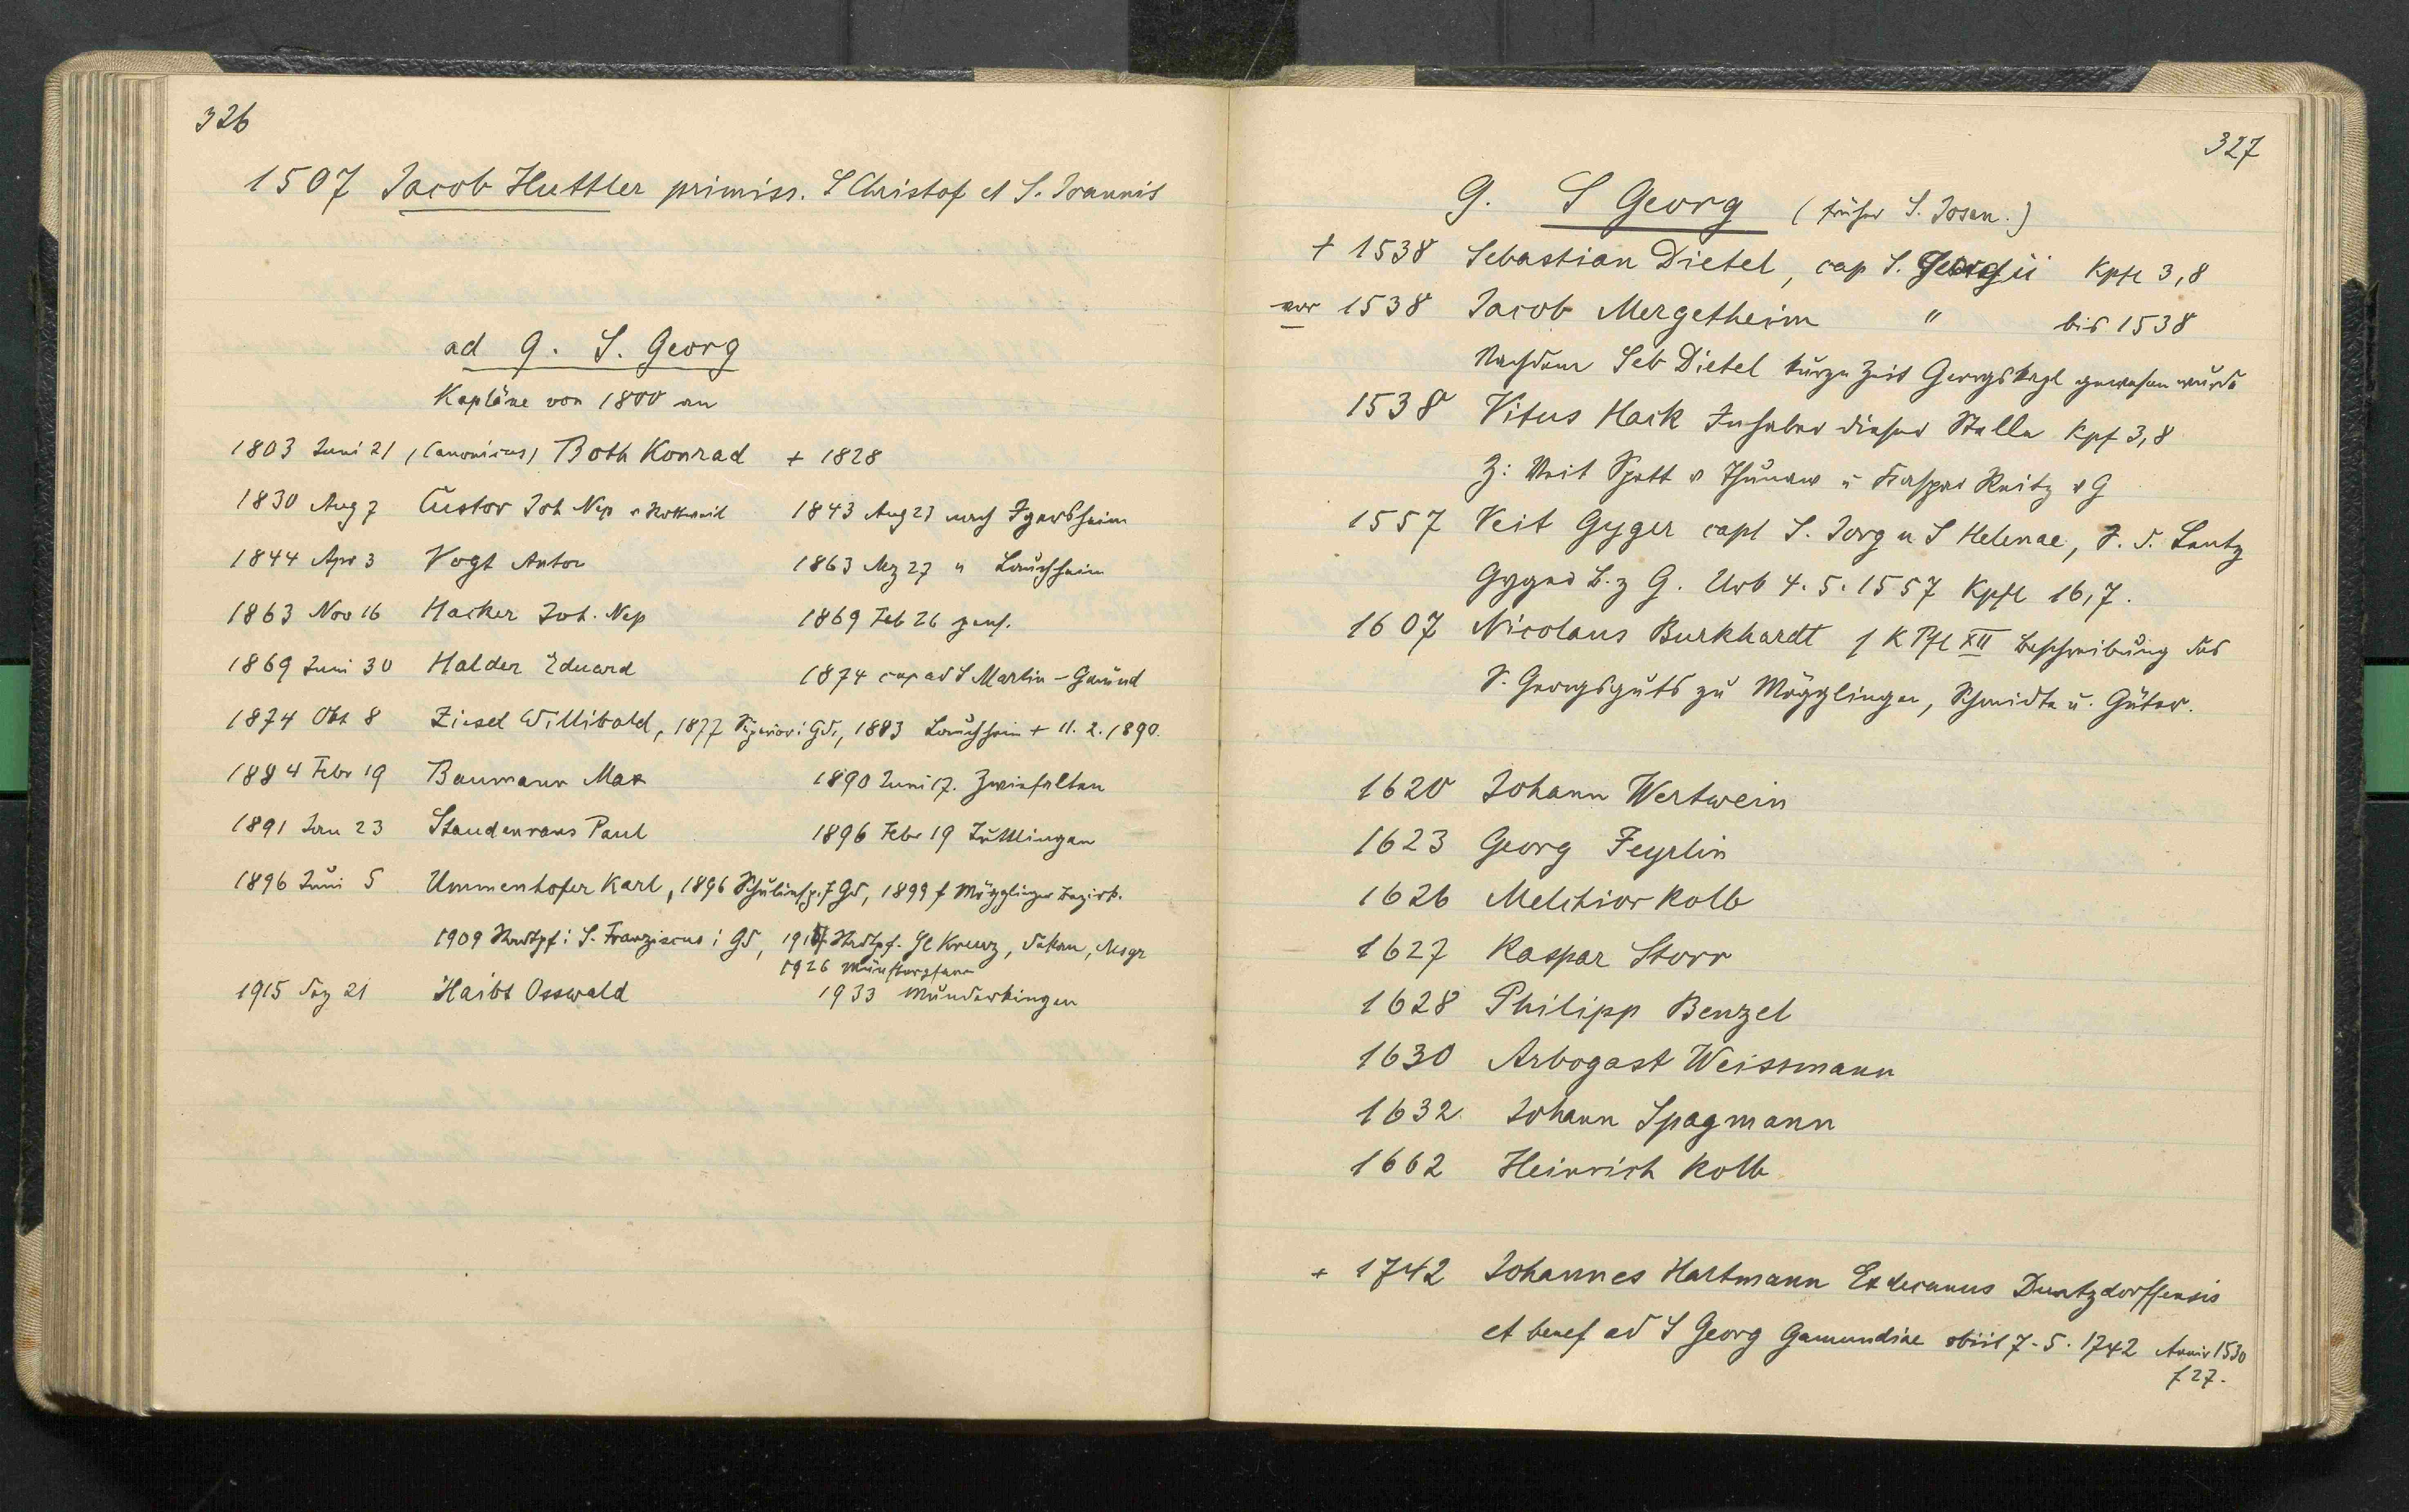 326
1507 Jacob Huttler primiss. S Christof et S. Joannis
ad 9. S. Georg
Kapläne von 1800 an
1803 Juni 21 (Canonicus) Both Konrad + 1828
1830 Aug 7 Custor Joh Nep v Rottweil 1843 Aug 23 nach Igersheim
1844 Apr 3 Vogt Anton 1863 Mz 27 " Lauchheim
1863 Nov 16 Hacker Joh. Nep 1869 Feb 26 pens.
1869 Juni 30 Halder Eduard 1874 cap ad S Martin - Gmünd
1874 Okt 8 Ziesel Willibald, 1877 Superior i Gd., 1883 Lauchheim + 11. 2. 1890.
1884 Febr 19 Baumann Max 1890 Juni 17. Zwiefalten
1891 Jan 23 Staudenraus Paul 1896 Febr 19 Tuttlingen
1896 Juni 5 Ummenhofer Karl, 1896 Schulinsp. f Gd, 1899 f Mögglinger Bezirk.
1909 Stadtpf i S. Franziscus i Gd, 1917 Stadtpf. Hl Kreuz, Dekan, Msgr
1926 Münsterpfarr
1915 Dez 21 Haibt Osswald 1933 Munderkingen
327
9. S Georg (früher S. Josen.)
+ 1538 Sebastian Dietel, cap S. Georgii Kpfl 3,8
vor 1538 Jacob Mergetheim " bis 1538
Nachdem Seb Dietel kurze Zeit Georgskapl gewesen wurde
1538 Vitus Hack Inhaber dieser Stelle Kpf 3,8
Z: Veit Spett v Thunaw u Kaspar Reitz v G
1557 Veit Gyger capl S. Jorg u S Helenae, S. d. Lentz
Gyger B. z G. Urb 4. 5. 1557 Kpfl 16,7.
1607 Nicolaus Burkhardt f K Pfl XII Beschreibung des
S. Georgsguts zu Mögglingen, Schmidte u. Güter.
1620 Johann Wertwein
1623 Georg Feyrlin
1626 Melchior Kolb
1627 Kaspar Storr
1628 Philipp Benzel
1630 Arbogast Weissmann
1632 Johann Spagmann
1662 Heinrich Kolb
+ 1742 Johannes Hartmann Exdecanus Duntzdorffensis
et benef ad S Georg Gamundiae obiit 7. 5. 1742 Anniv 1530
f 27.